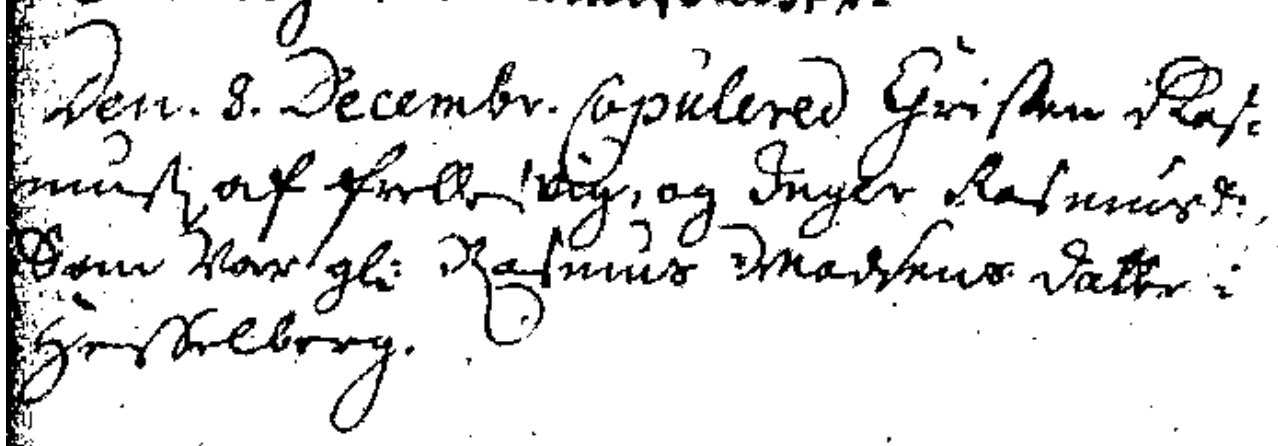 Den. 8. Decembr. Copulered Christen Ras:
muss; af frellesvig, og Inger Rasmusd:,
Som Var gl: Rasmus Madsens datter i
Hesselberg.